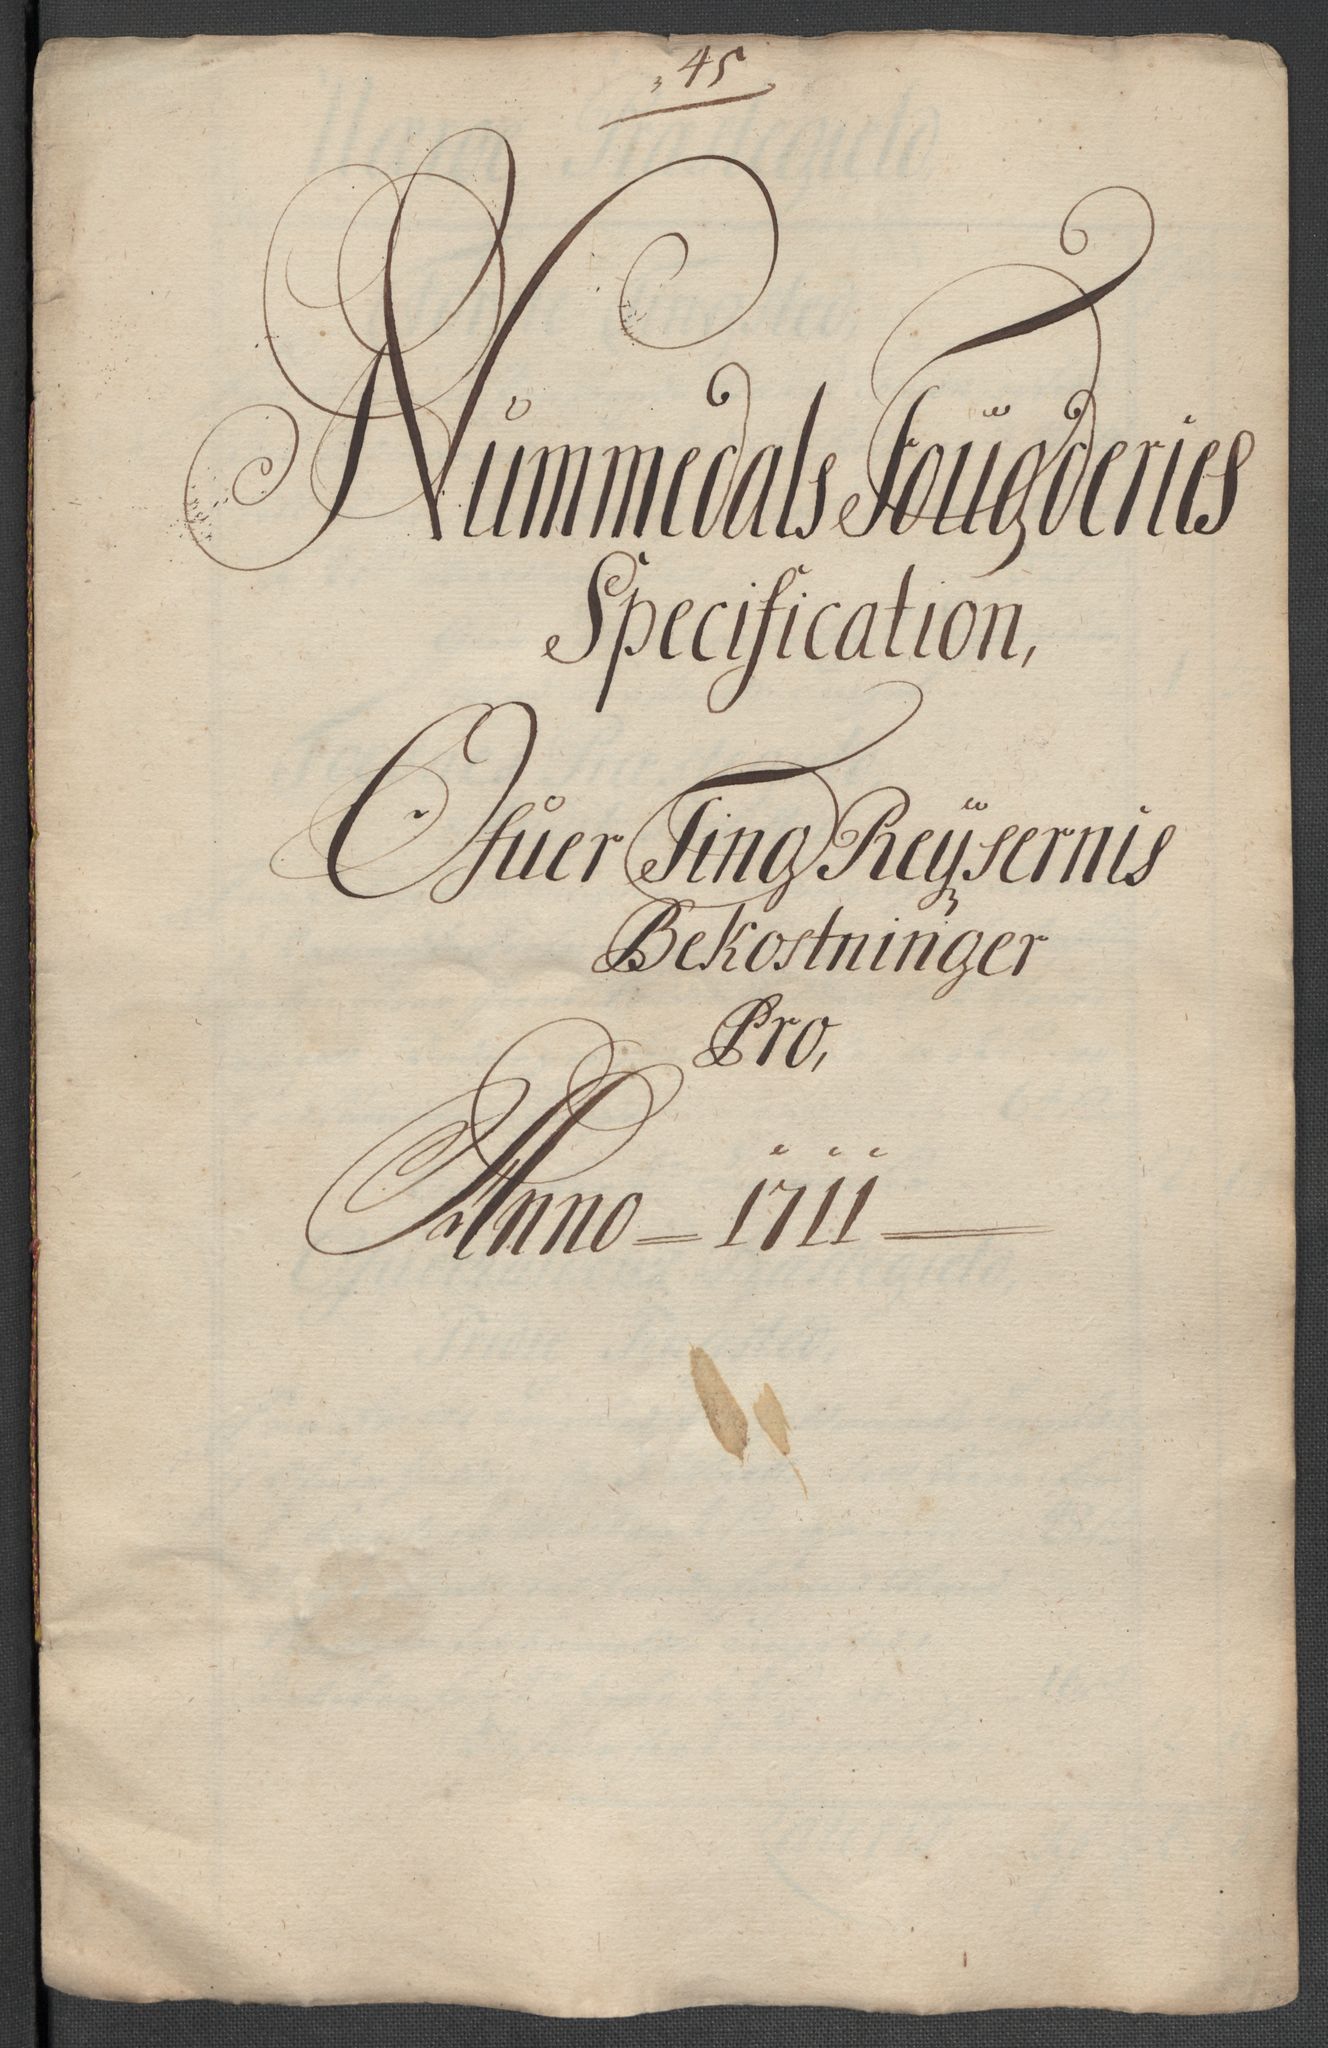 45
Nummedals Fougderies
Specification,
Ofuer Ting Reÿsernis
Bekostninger
Pro,
Anno 1711